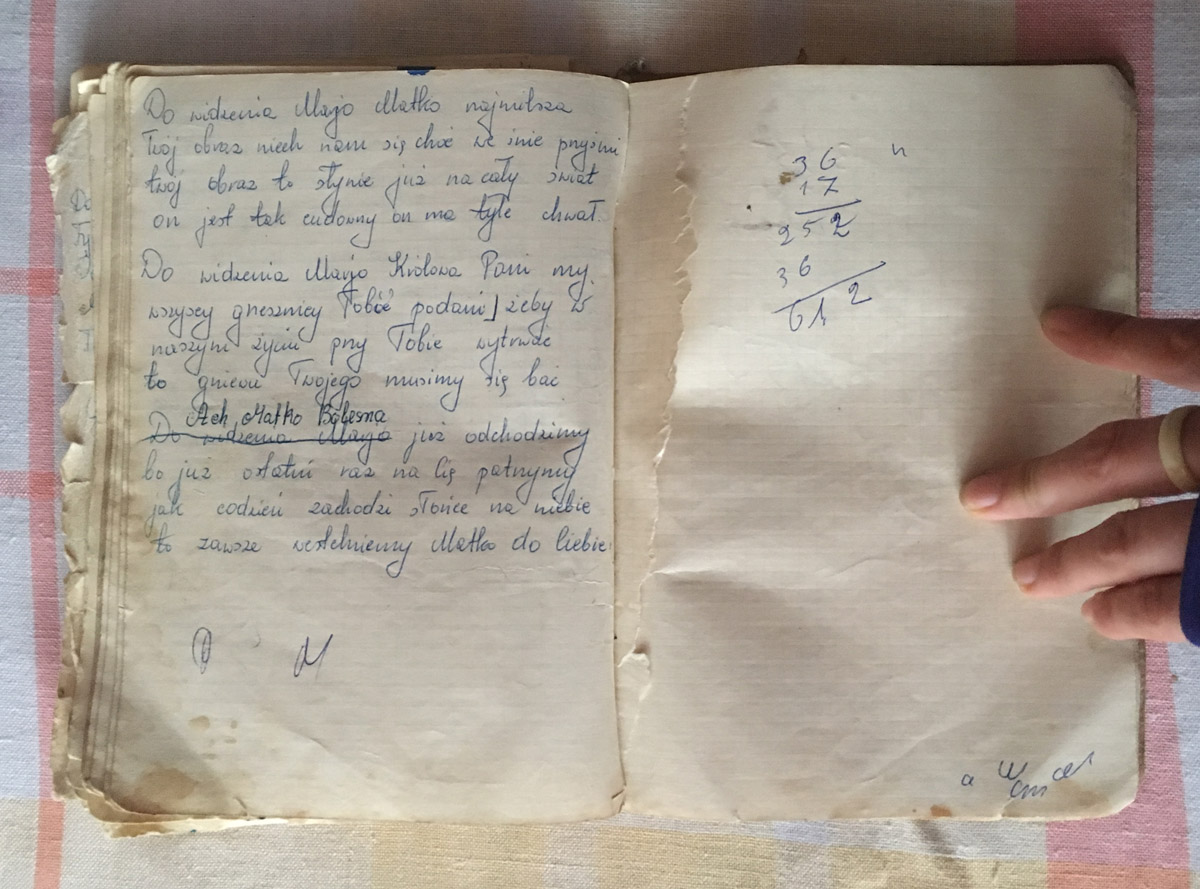 Do widzenia Maryjo Matko najmilsza
Twój obraz niech nam się choć we śnie przyśni
twój obraz to słynie już na cały świat
on jest tak cudowny on ma tyle chwał.
Do widzenia Maryjo Królowa Pani my
wszyscy grzesznicy Tobie podani żeby w
naszym życiu przy Tobie wytrwać
to gniewu Twojego musimy się bać
Ach Matko Bolesna
Do widzenia Maryjo już odchodzimy
bo już ostatni raz na Cię patrzymy
jak codzień zachodzi słońce na niebie
to zawsze westchniemy Matko do Ciebie
M
36
17
252
36
612
a